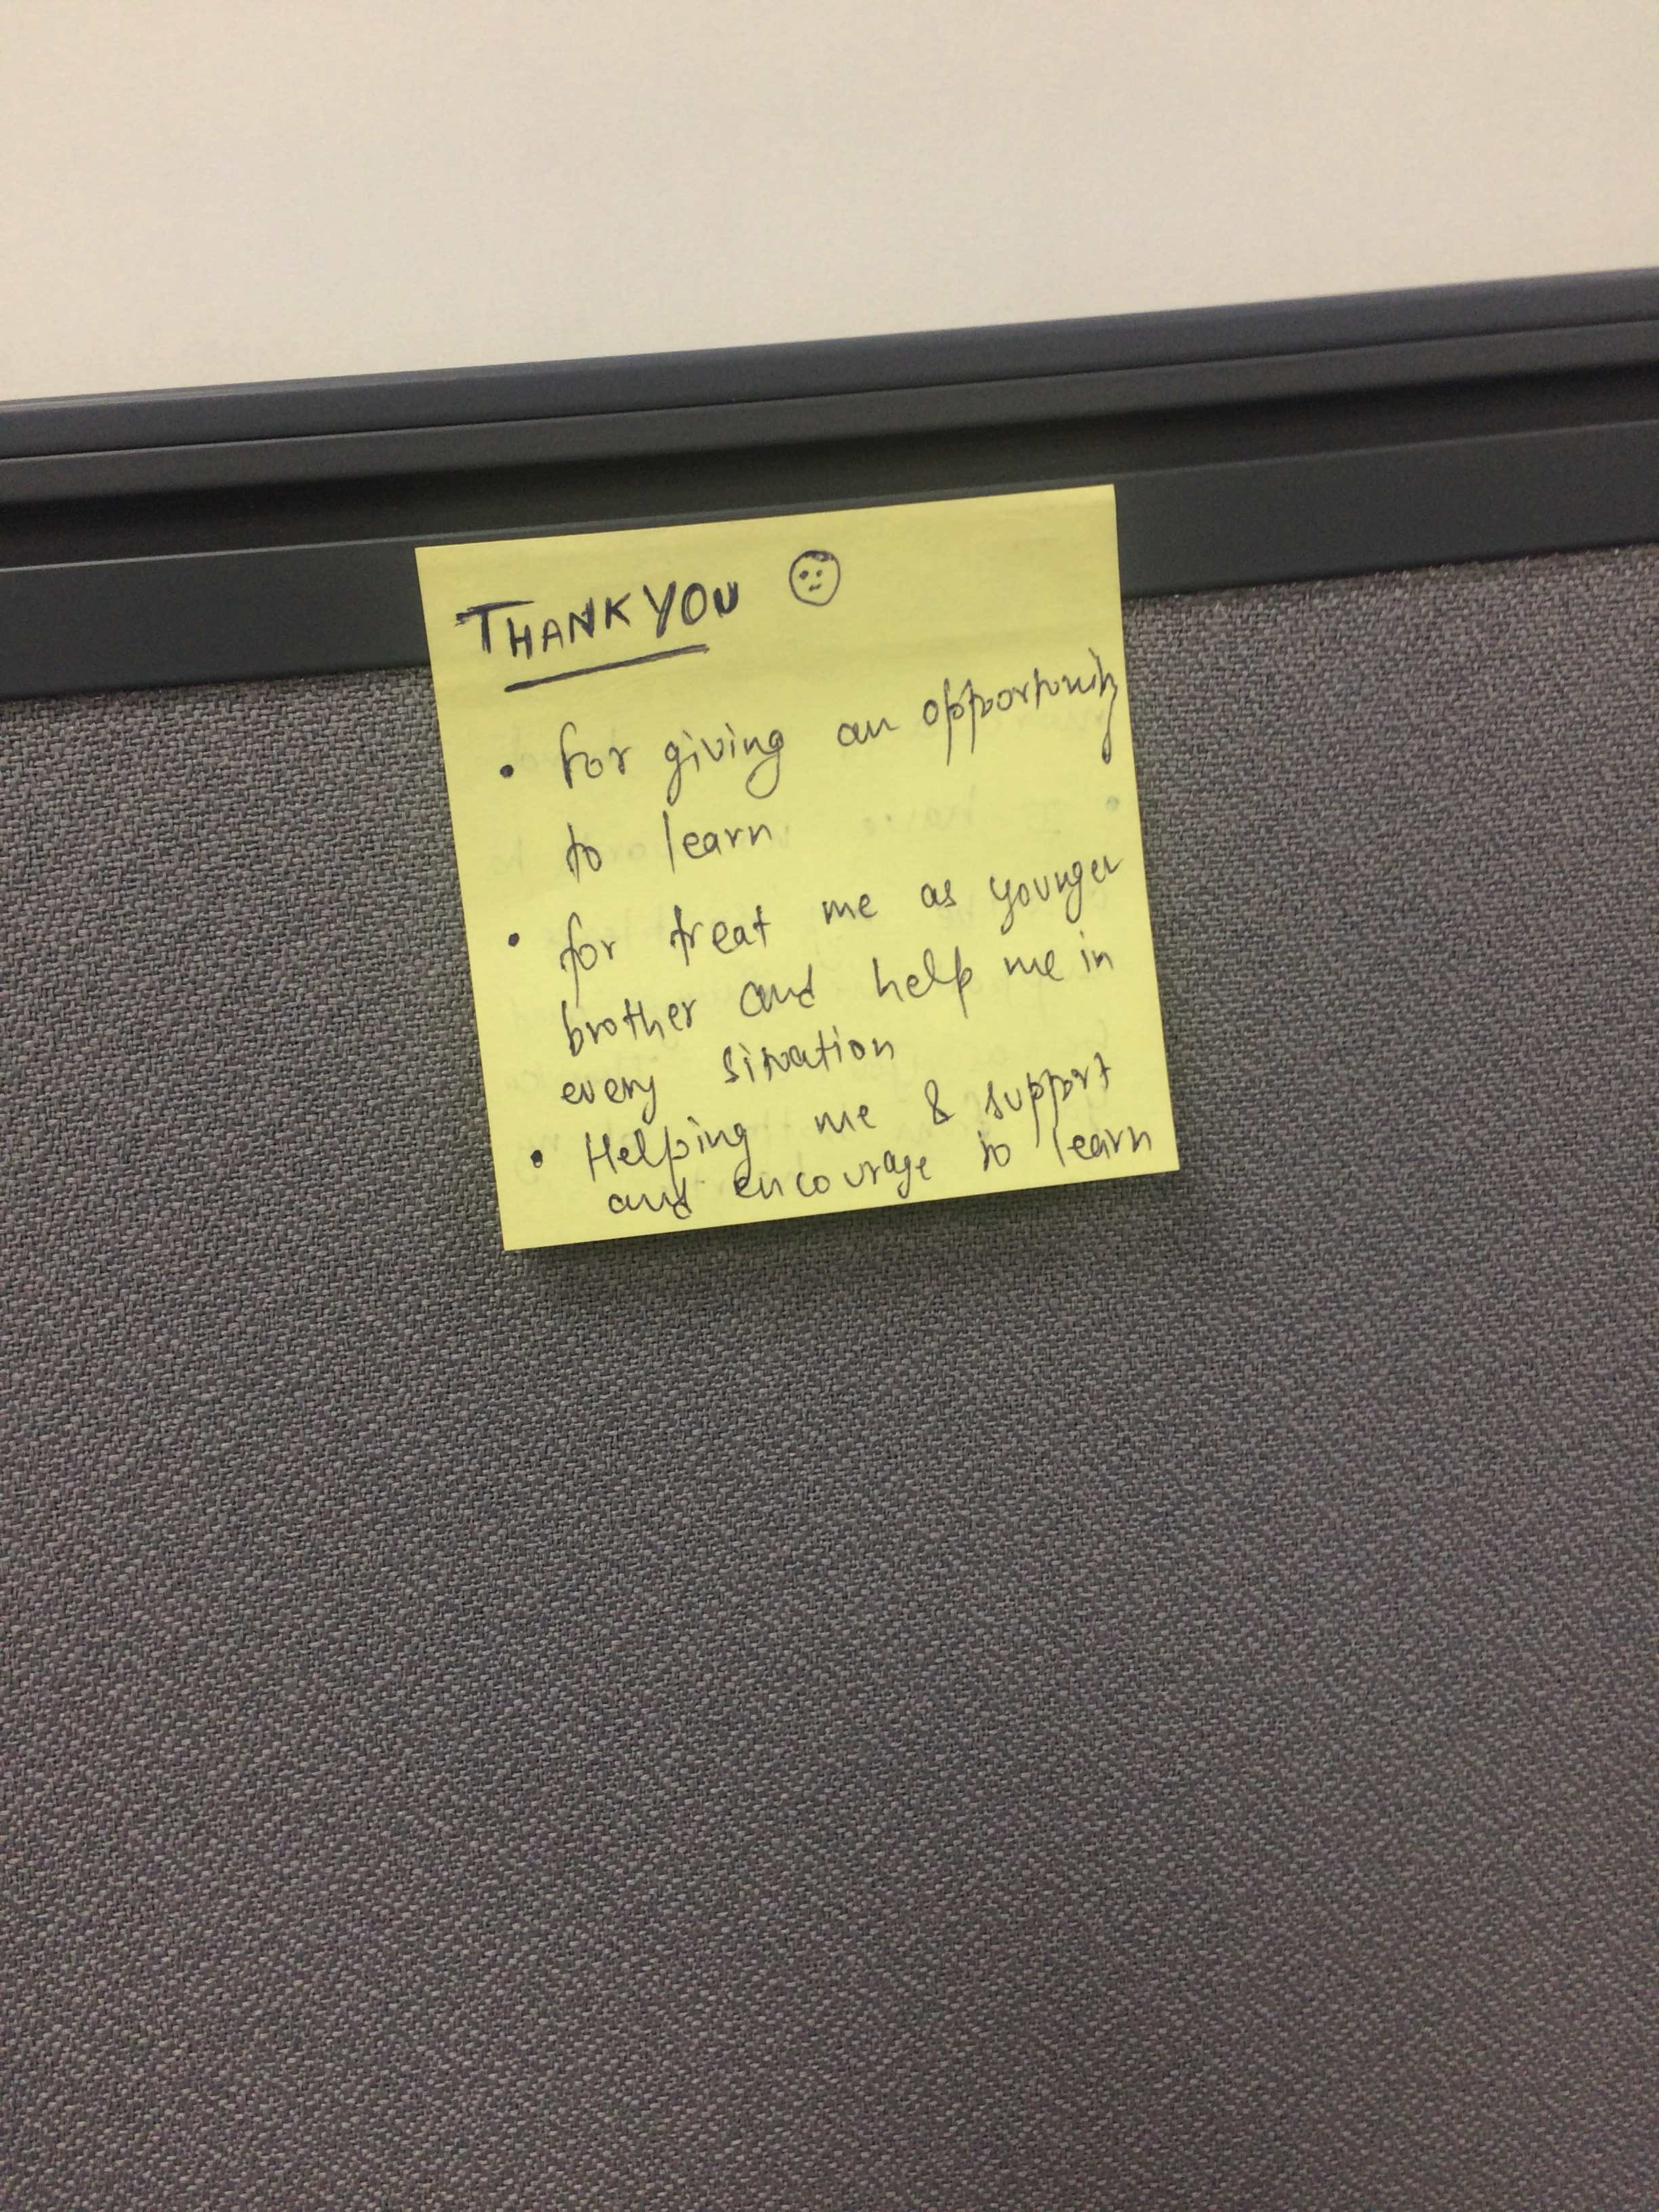 THANK YOU
• for giving an opportunity
to learn
• for treat me as younger
brother and help me in
every situation
• Helping me & support
and encourage to learn